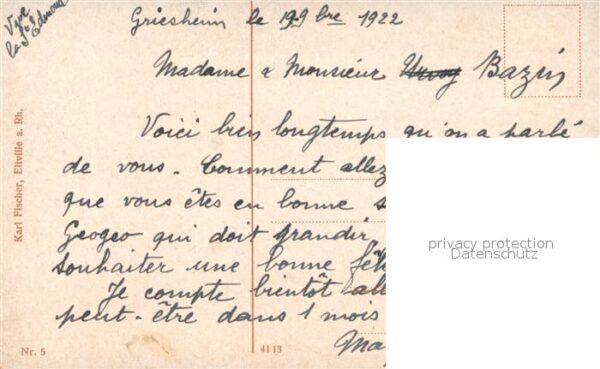 Griesheim le 19 9bre 1922
Vve
la
Madame & Monsieur Bazin
Voici bien longtemps qu'on a parlé
de vous. Comment allez
que vous êtes en bonne s
Geogeo qui doit grandir
souhaiter une bonne fêt
Je compte bientôt all
peut-être dans 1 mois
Ma
Karl Fischer, Eltville a. Rh.
Nr. 5
4113
privacy protection
Datenschutz